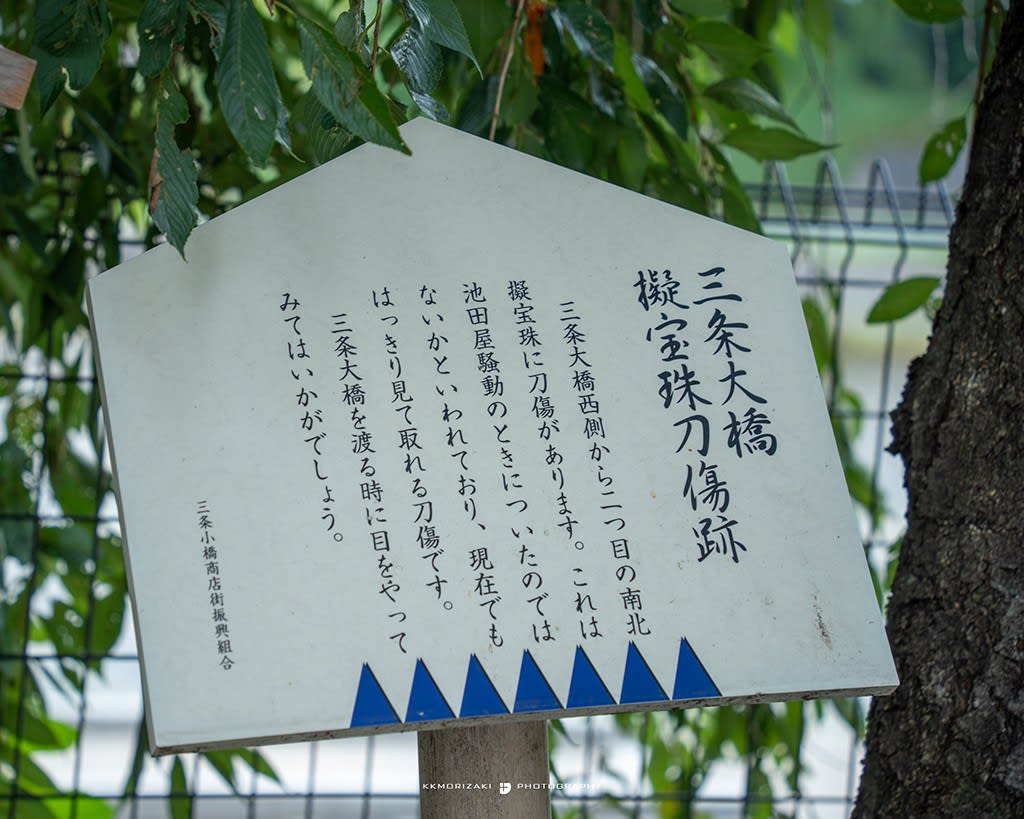 三条大橋
擬宝珠刀傷跡
三条大橋西側から二つ目の南北
擬宝珠に刀傷があります。これは
池田屋騒動のときについたのでは
ないかといわれており、現在でも
はっきり見て取れる刀傷です。
三条大橋を渡る時に目をやって
みてはいかがでしょう。
三条小橋商店街振興組合
KKMORIZAKI PHOTOGRAPHY